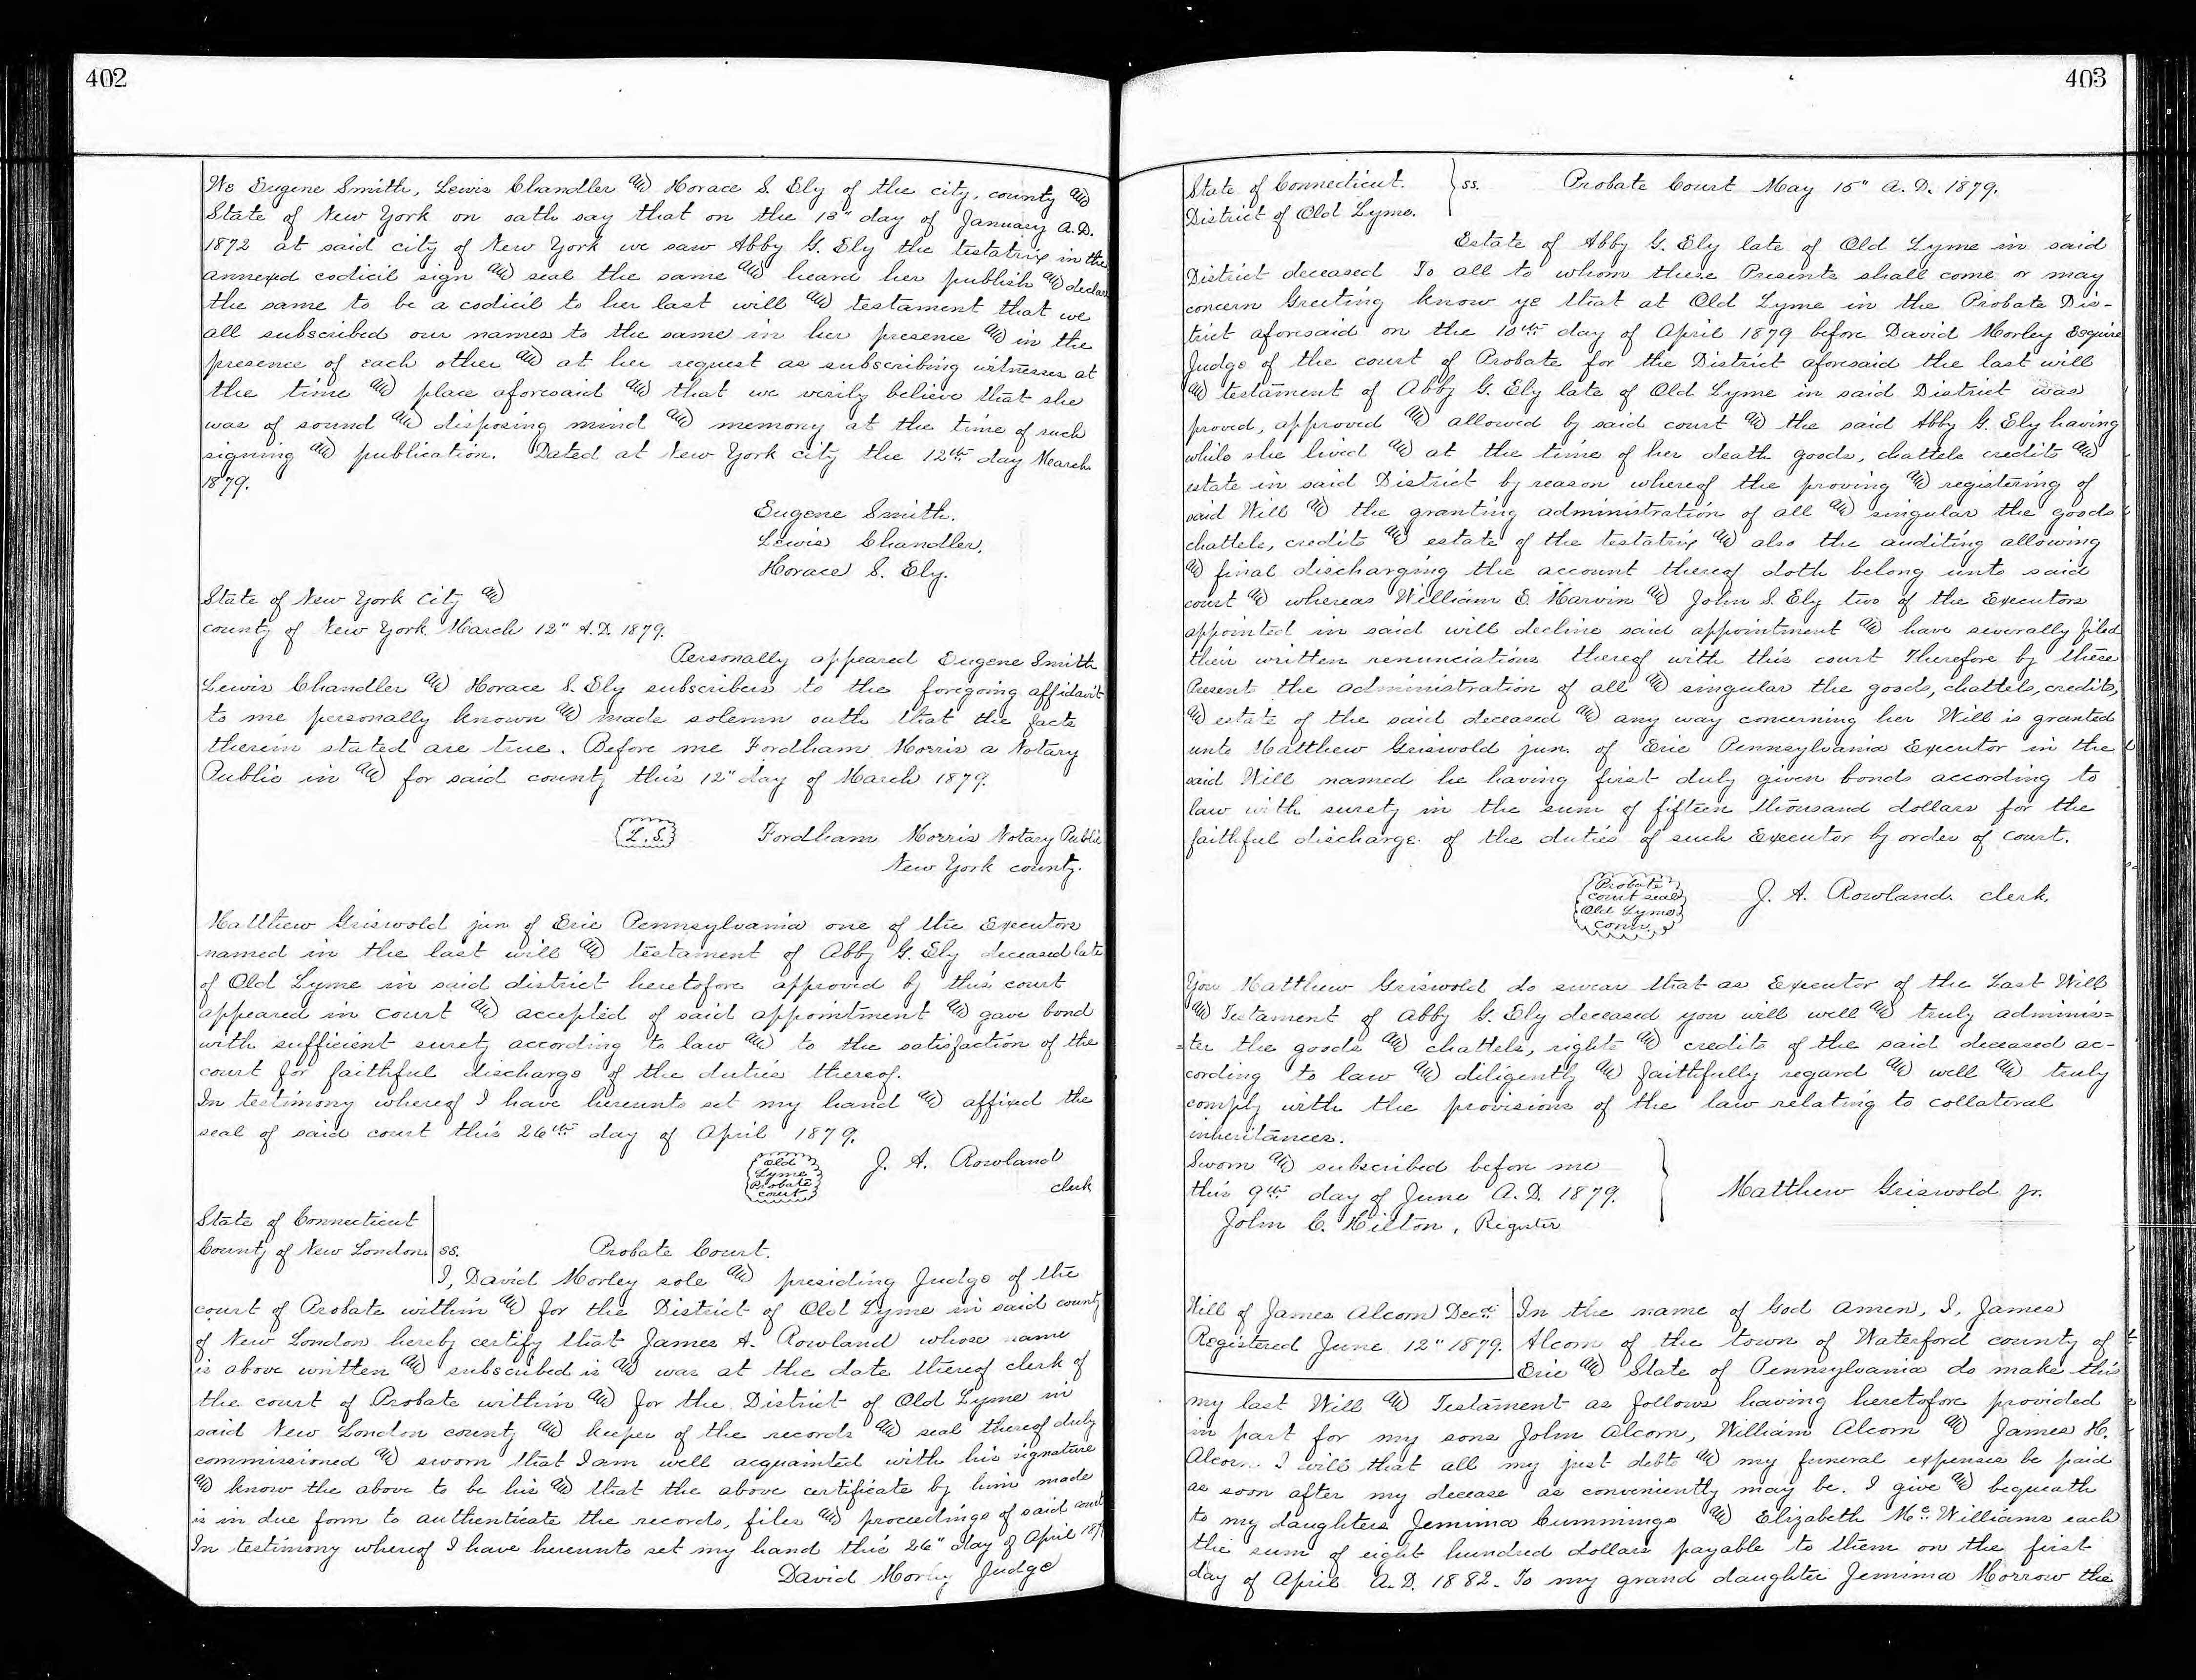 402
We Eugene Smith, Lewis Chandler and Horace S. Ely of the city, county and
State of New York on oath say that on the 13" day of January A.D.
1872 at said city of New York we saw Abby G. Ely the testatrix in the
annexed codicil sign and seal the same and heard her publish and declare
the same to be a codicil to her last will and testament that we
all subscribed our names to the same in her presence and in the
presence of each other and at her request as subscribing witnesses at
the time and place aforesaid and that we verily believe that she
was of sound and disposing mind and memory at the time of such
signing and publication. Dated at New York city the 12th day March
1879.
Eugene Smith.
Lewis Chandler.
Horace S. Ely.
State of New York City and
county of New York. March 12" A.D. 1879.
Personally appeared Eugene Smith
Lewis Chandler and Horace S. Ely subscribers to the foregoing affidavit
to me personally known and made solemn oath that the facts
therein stated are true. Before me Fordham Morris a Notary
Public in and for said county this 12" day of March 1879.
L.S. Fordham Morris Notary Public
New York county.
Matthew Griswold jun of Erie Pennsylvania one of the Executors
named in the last will and testament of Abby G. Ely deceased late
of Old Lyme in said district heretofore approved by this court
appeared in court and accepted of said appointment and gave bond
with sufficient surety according to law and to the satisfaction of the
court for faithful discharge of the duties thereof.
In testimony whereof I have hereunto set my hand and affixed the
seal of said court this 26th day of April 1879.
Old Lyme Probate court J. A. Rowland
clerk
State of Connecticut
County of New London. ss. Probate Court.
I, David Morley sole and presiding Judge of the
court of Probate within and for the District of Old Lyme in said county
of New London hereby certify that James A. Rowland whose name
is above written and subscribed is and was at the date thereof clerk of
the court of Probate within and for the District of Old Lyme in
said New London county and keeper of the records and seal thereof duly
commissioned and sworn that I am well acquainted with his signature
and know the above to be his and that the above certificate by him made
is in due form to authenticate the records, files and proceedings of said court
In testimony whereof I have hereunto set my hand this 26" day of April 187
David Morley Judge
403
State of Connecticut. ss. Probate Court May 15" A.D. 1879.
District of Old Lyme.
Estate of Abby G. Ely late of Old Lyme in said
District deceased To all to whom these Presents shall come or may
concern Greeting know ye that at Old Lyme in the Probate Dis-
trict aforesaid on the 10th day of April 1879 before David Morley Esquire
Judge of the court of Probate for the District aforesaid the last will
and testament of Abby G. Ely late of Old Lyme in said District was
proved, approved and allowed by said court and the said Abby G. Ely having
while she lived and at the time of her death goods, chattels credits and
estate in said District by reason whereof the proving and registering of
said Will and the granting administration of all and singular the goods
chattels, credits and estate of the testatrix and also the auditing allowing
and final discharging the account thereof doth belong unto said
court and whereas William E. Marvin and John S. Ely two of the Executors
appointed in said will decline said appointment and have severally filed
their written renunciations thereof with this court Therefore by these
Present the administration of all and singular the goods, chattels, credits,
and estate of the said deceased and any way concerning her Will is granted
unto Matthew Griswold jun. of Erie Pennsylvania Executor in the
said Will named he having first duly given bonds according to
law with surety in the sum of fifteen thousand dollars for the
faithful discharge of the duties of such Executor by order of court.
Probate court seal Old Lyme Conn. J. A. Rowland. clerk.
You Matthew Griswold do swear that as Executor of the Last Will
and Testament of Abby G. Ely deceased you will well and truly adminis=
=ter the goods and chattels, rights and credits of the said deceased ac-
cording to law and diligently and faithfully regard and well and truly
comply with the provisions of the law relating to collateral
inheritances.
Sworn and subscribed before me
this 9th day of June A.D. 1879. Matthew Griswold Jr.
John C. Hilton, Register
Will of James Alcorn Decd. In the name of God Amen, I, James
Registered June 12" 1879. Alcorn of the town of Waterford county of
Erie and State of Pennsylvania do make this
my last Will and Testament as follows having heretofore provided
in part for my sons John Alcorn, William Alcorn and James H.
Alcorn. I will that all my just debts and my funeral expenses be paid
as soon after my decease as conveniently may be. I give and bequeath
to my daughters Jemima Cummings and Elizabeth Mc.Williams each
the sum of eight hundred dollars payable to them on the first
day of April A.D. 1882. To my grand daughter Jemima Morrow the